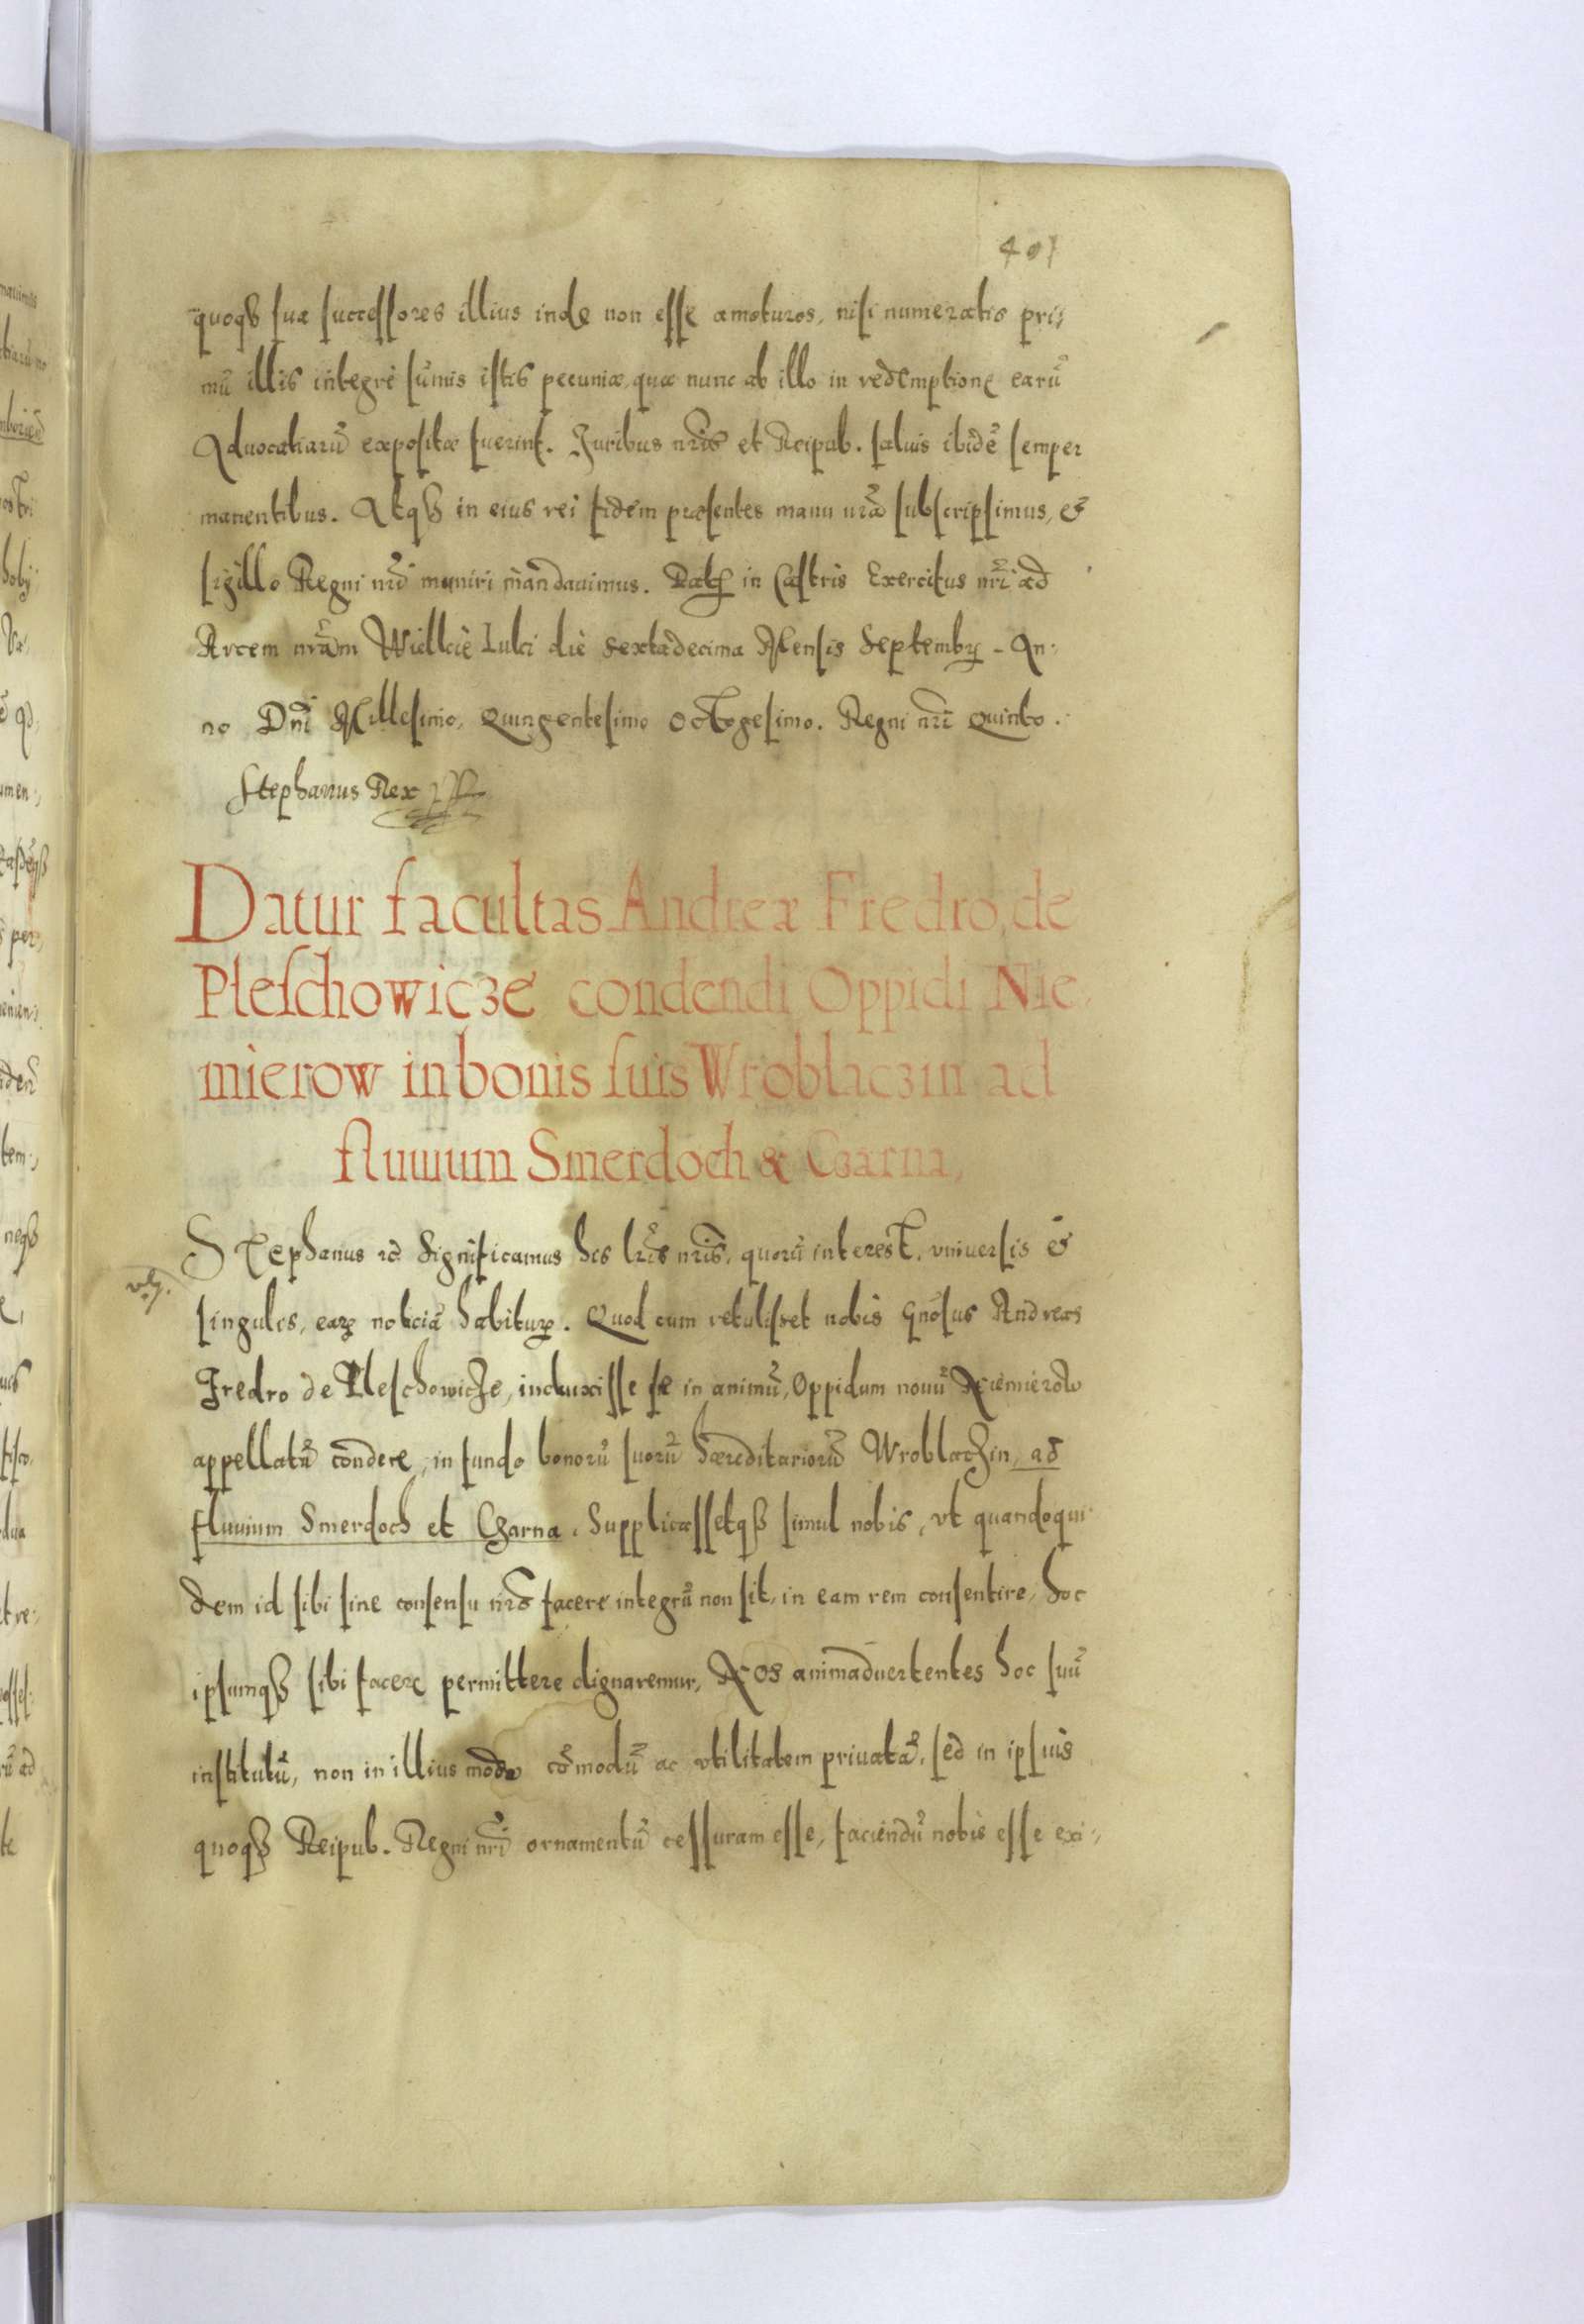 401
quoqꝫ suæ successores illius inde non esse amoturos, nisi numeratis pri:
mũ illis integrè sũmis istis pecuniæ, quæ nunc ab illo in redemptione earũ
Aduocatiarũ expositæ fuerint. Juribus nr̃is et Reipub. saluis ibidẽ semper
manentibus. Atqꝫ in eius rei fidem præsentes manu nr̃a subscripsimus, et
sigillo Regni nr̃i muniri mandauimus. Datꝭ in Castris Exercitus nr̃i ad
Arcem nr̃am Wiellcie Luki die sextadecima Mensis Septembꝝ. An:
no Dñi Millesimo, Quingentesimo Octogesimo. Regni nr̃i Quinto.
Stephanus Rex
Datur facultas Andreæ Fredro, de
Pleschowicze condendi Oppidi Nie,
mierow in bonis suis Wroblaczin ad
fluuium Smerdoch & Czarna,
Stephanus ꝛc̃ Significamus his lr̃is nr̃is, quorũ interest, vniuersis et
singulis, eaꝝ noticiã habituꝝ. Quod cum retulisset nobis Gñosus Andreas
Fredro de Pleschowicze, induxisse se in animũ, Oppidum nouũ Niemierow
appellatũ condere, in fundo bonorũ suorũ hæreditariorũ Wroblaczin, ad
fluuium Smerdoch et Czarna. Supplicassetqꝫ simul nobis, vt quandoqui
dem id sibi sine consensu nr̃o facere integrũ non sit, in eam rem consentire, hoc
ipsumqꝫ sibi facere permittere dignaremur, Nos animaduertentes hoc suũ
institutũ, non in illius modo cõmodũ ac vtilitatem priuatã, sed in ipsius
quoqꝫ Reipub. Regni nr̃i ornamentũ cessuram esse, faciendũ nobis esse exi:,